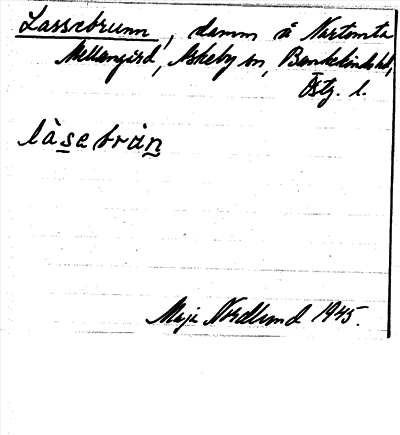 Lassebrunn, damm å Nartomta
Mellangård, Askeby sn, Bankekinds hd,
Östg. l.
làsebràn
Maja Nordlund 1945.